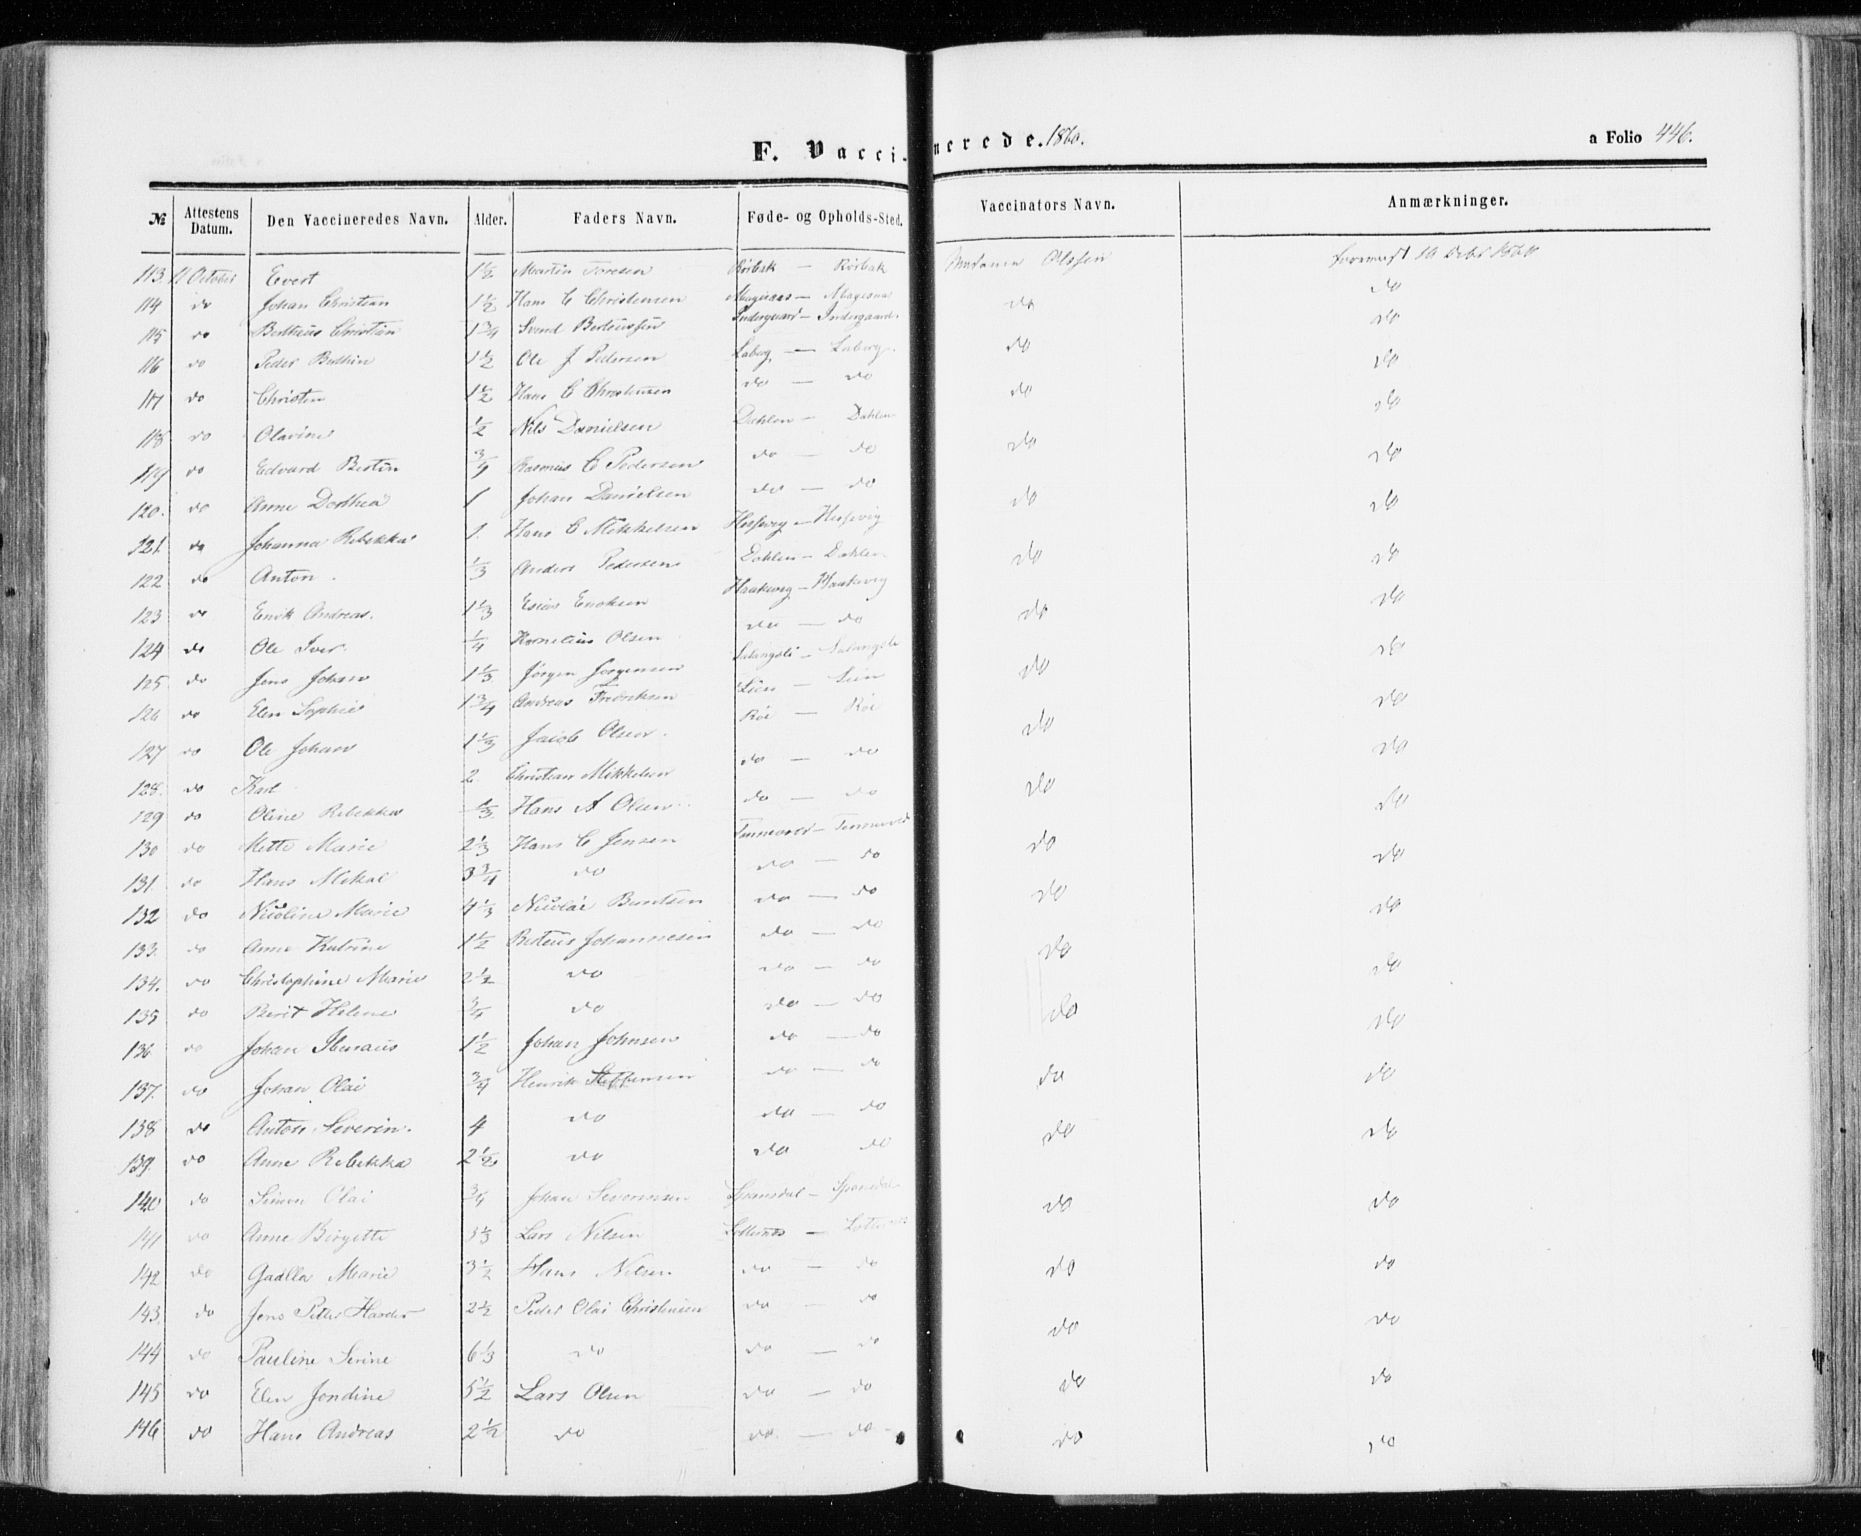 F. Vaccinerede. 1860. a Folio 446.
№ Attestens Datum. Den Vaccineredes Navn. Alder. Faders Navn. Føde- og Opholds-Sted. Vaccinators Navn. Anmærkninger.
113. 11 October Evert 1 1/2 Martin Toresen Rörbak — Rörbak Madame Olsen
114 do Johan Christian 1 1/2 Hans C Christensen do do
115 do Bertheus Christian 1 3/4 Svend Berteussen Indergaard — Indergaard do do
116 do Peder Berthin 1 1/2 Ole J Pedersen Laberg — Laberg do do
117 do Christen 1 1/2 Hans C Christensen do — do do do
118 do Olavine 1/2 Nils Danielsen Dahlen — Dahlen do do
119 do Edvard Bertin 3/4 Rasmus C Pedersen do — do do do
120. do Anne Dorthea 1 Johan Danielsen do — do do do
121. do Johanna Rebekka 1. Hans C Mikkelsen do do
122 do Anton. 1/3 Anders Pedersen Dahlen — Dahlen do do
123 do Enok Andreas. 1 1/3 Esias Enoksen Haakvig — Haakvig do do
124 do Ole Iver. 1/4 Kornelius Olsen do — do do do
125 do Jens Johan 1 1/3 Jörgen Jörgensen Salangsli — Salangsli do do
126 do Elen Sophie 1 3/4 Andreas Fredriksen Lien — Lien do do
127 do Ole Johan 1 1/3 Jacob Olsen. Röe — Röe do do
128. do Karl 2. Christian Mikkelsen do — do do do
129 do Oline Rebekka 1/3. Hans A Olsen do — do do do
130 do Mette Marie 2 1/3 Hans C Jensen do do
131. do Hans Mikal 3 3/4 do do — do do do
132 do Nicoline Marie 4 1/3 Nicolai Berntsen do — do do do
133. do Anne Katrine 1 1/2 Berteus Johannesen do — do do do
134. do Christophine Marie 2 1/2 do do — do do do
135 do Berit Helene 3/4 do do — do do do
136 do Johan 1 1/2 Johan Johnsen do — do do do
137. do Johan Olai 3/4 Henrik Steffensen do — do do do
138 do Anton Severin. 4 do do — do do do
139. do Anne Rebekka 2 1/2 do do do do do
140 do Simon Olai 3/4 Johan Severinsen Spansdal — Spansdal do do
141 do Anne Birgette 5 1/3 Lars Nilsen do do
142 do Gadlla Marie 3 1/2 Hans Nilsen do — do do do
143. do Jens Peter Harder 2 1/2 Peder Olai Christensen do — do do do
144 do Pauline Serine 6 1/3 do do — do do do
145 do Elen Jondine 5 1/2 Lars Olsen do — do do do
146 do Hans Andreas 2 1/2 do do — do do do